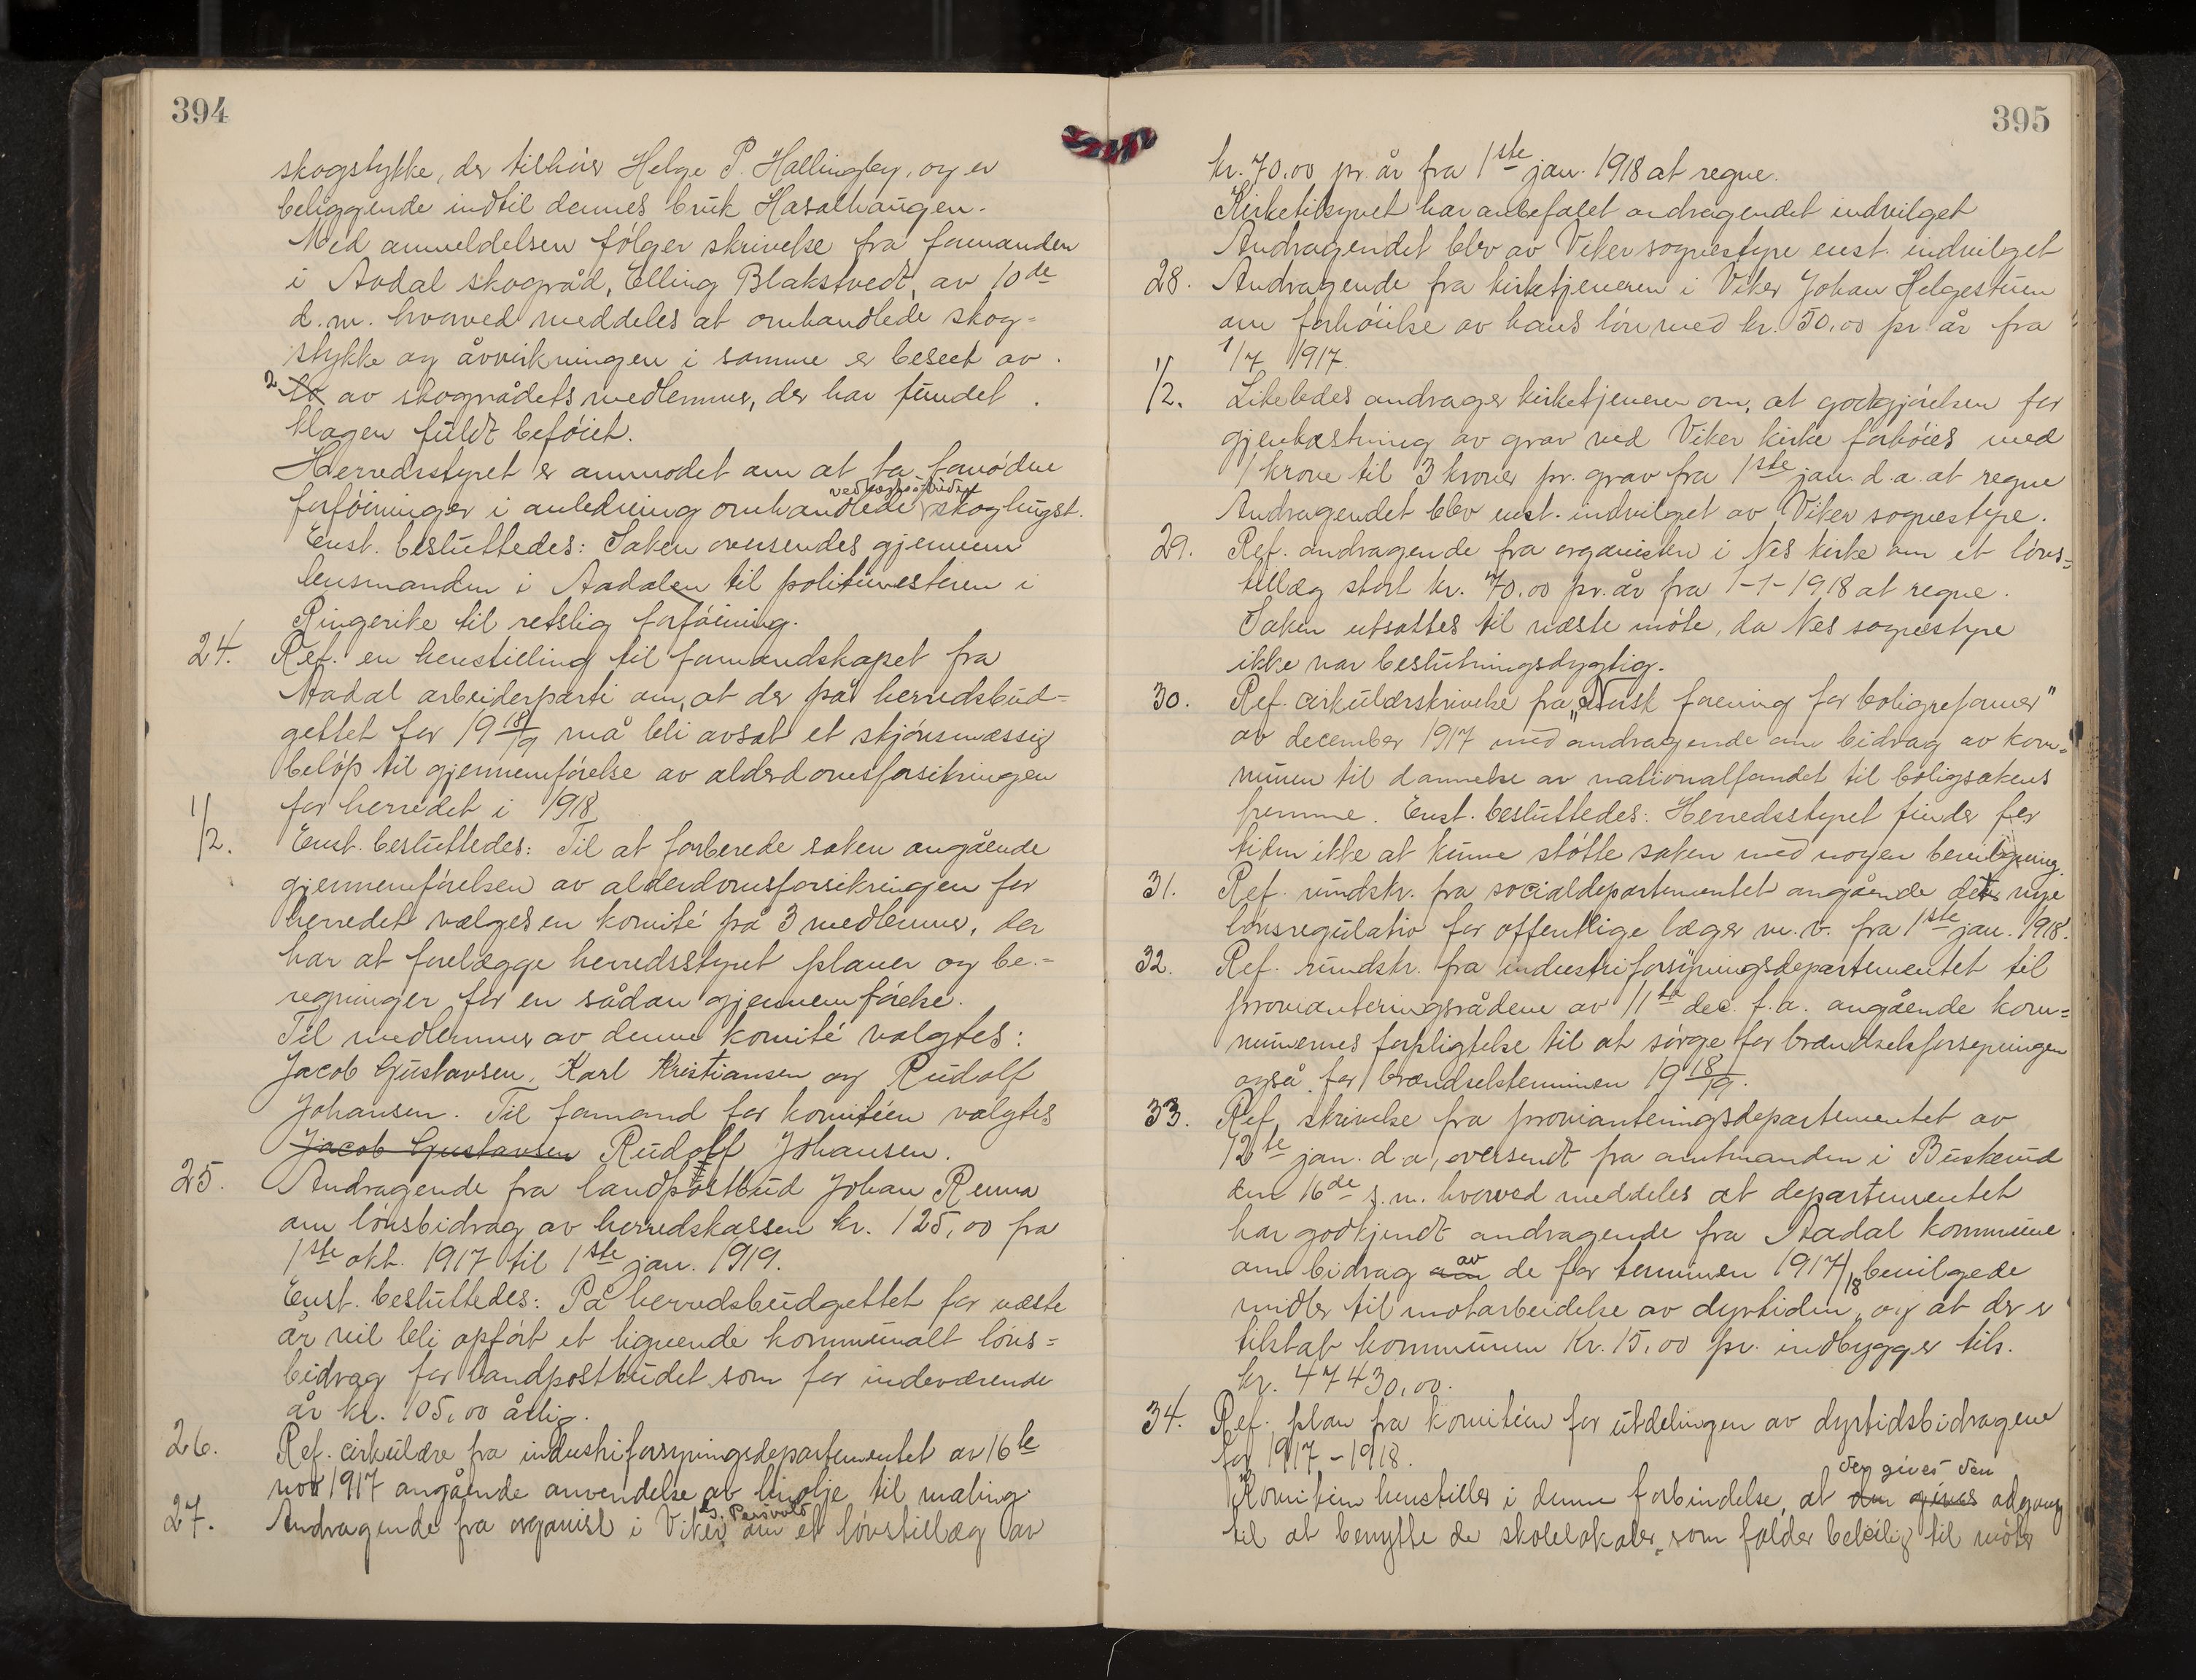 394
skogstykke, der tilhöir Helge P. Hallingby, og er
beliggende indtil dennes bruk Hasalhaugen.
Med anmeldelsen følger skrivelse fra formanden
i Aadal skogråd, Elling Blakstvedt, av 10de
d.m. hvorved meddeles at omhandlede skog-
stykke og avvirkningen i samme er beseet av
2 to av skogrådets medlemmer, der har fundet
klagen fuldt beføiet.
Herredsstyret er anmodet om at ta fornødne
forføininger i anledning omhandlede skoghugst.
Enst. besluttedes: Saken oversendes gjennem
lensmanden i Aadalen til politimesteren i
Ringerike til retslig forføining.
24. Ref. en henstilling til formandskapet fra
Aadal arbeiderparti om, at der på herredsbud-
gettet for 19 18/19 må bli avsat et skjønsmæssig
beløp til gjennemførelse av alderdomsforsikringen
for herredet i 1918
1/2. Enst. besluttedes: Til at forberede saken angående
gjennemførelsen av alderdomsforsikringen for
herredet vælges en komité på 3 medlemmer, der
har at forelægge herredsstyret planer og be-
regninger for en sådan gjennemførelse.
Til medlemmer av denne komité valgtes:
Jacob Gustavsen, Karl Kristiansen og Rudolf
Johansen. Til formand for komitéen valgtes
Jacob Gustavsen Rudolf Johansen.
25. Andragende fra landpostbud Johan Renna
om lønsbidrag av herredskassen kr. 125,00 fra
1ste okt. 1917 til 1ste jan. 1919.
Enst. besluttedes: På herredsbudgettet for næste
år vil bli opført et lignende kommunalt løns-
bidrag for landpostbudet som for indeværende
år kr. 105,00 årlig.
26. Ref. cirkulære fra industriforsyningsdepartementet av 16de
nov 1917 angående anvendelse av linolje til maling.
27. Andragende fra organist i Viker om et lønstillæg av
395
kr. 70,00 pr. år fra 1ste jan. 1918 at regne.
Kirketilsynet har anbefalet andragendet indvilget
Andragendet blev av Viker sognestyre enst. indvilget
28. Andragende fra kirketjeneren i Viker Johan Helgestuen
om forhöielse av hans løn med kr. 50,00 pr. år fra
1/7 1917.
1/2. Likeledes andrager kirketjeneren om, at godtgjørelsen for
gjenkastning av grav ved Viker kirke forhöies med
1 krone til 3 kroner pr. grav fra 1ste jan. d.a. at regne
Andragendet blev enst. indvilget av Viker sognestyre.
29. Ref. andragende fra organisten i Nes kirke om et løns-
tillæg stort kr. 70,00 pr. år fra 1-1-1918 at regne.
Saken utsattes til næste møte, da Nes sognestyre
ikke var beslutningsdygtig.
30. Ref. cirkulærskrivelse fra "Norsk forening for boligreformer"
av december 1917 med andragende om bidrag av kom-
munen til dannelse av nationalfondet til boligsakens
fremme. Enst. besluttedes: Herredsstyret finder for
tiden ikke at kunne støtte saken med nogen bevilgning.
31. Ref. rundskr. fra socialdepartementet angående det nye
lønsregulativ for offentlige læger m.v. fra 1ste jan. 1918.
32. Ref. rundskr. fra industriforsyningsdepartementet til
provianteringsrådene av 11te dec. f.a. angående kom-
munernes forpligtelse til at sørge for brændselsforsyningen
også for brændselsterminen 19 18/19.
33. Ref. skrivelse fra provianteringsdepartementet av
12te jan. d.a, oversendt fra amtmanden i Buskerud
den 16de s.m. hvorved meddeles at departementet
har godkjendt andragende fra Aadal kommune
om bidrag av de for terminen 1917/18 bevilgede
midler til motarbeidelse av dyrtiden, og at der er
tilstat kommunen Kr. 15,00 pr. indbygger tils.
kr. 47430,00.
34. Ref. plan fra komitéen for utdelingen av dyrtidsbidragene
for 1917-1918.
der gives den
Komitéen henstiller i denne forbindelse, at den gives adgang
til at benytte de skolelokaler, som falder beleilig til møter